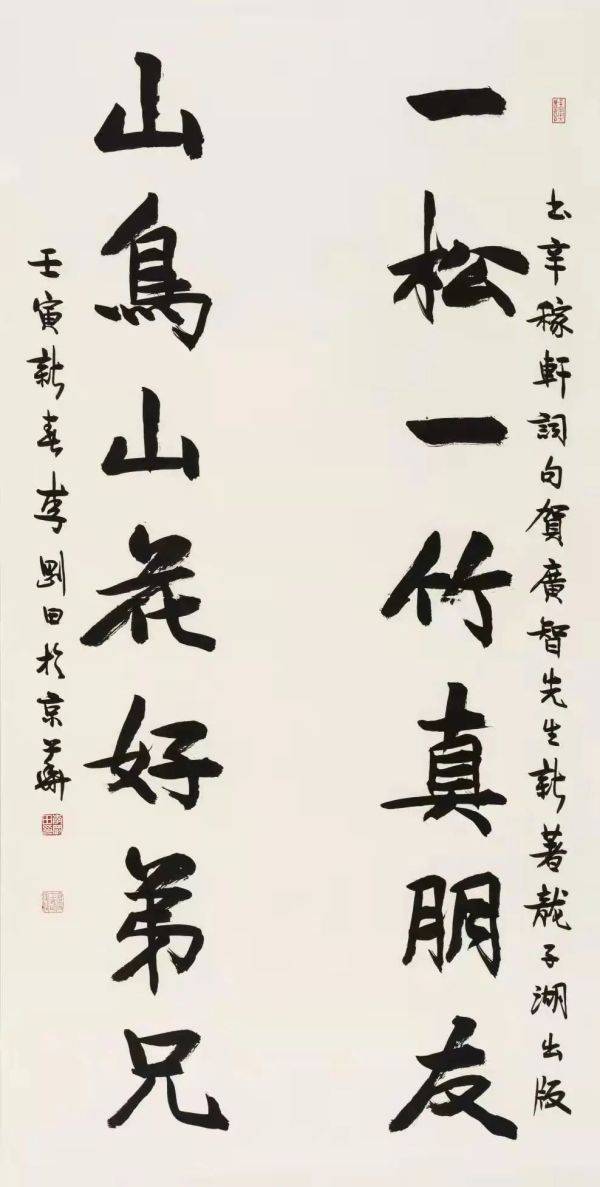 书辛稼軒詞句賀廣智先生新著龍子湖出版
一松一竹真朋友
山鳥山花好弟兄
壬寅新春李剛田於京華